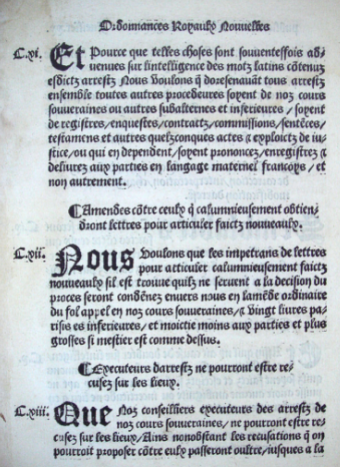 Ordonnances Royaulx Nouvelles
C.xi. Et Pource que telles choses sont souventesfois ad/
venues sur lintelligence des motz latins cõtenuz
esdictz arrestz Nous voulons q̃ doresenauãt tous arrestz
ensemble toutes autres procedures soyent de noz cours
souveraines ou autres subalternes et inferieures / soyent
de registres/enquestes/contractz/commissions/sentẽces/
testamens et autres quelzconques actes ⁊ exploictz de iu-
stice/ou qui en dependent/soyent prononcez/enregistrez ⁊
deliurez aux parties en langage maternel francoys / et
non autrement.
¶Amendes cõtre ceulx q̃ calumnieusement obtien/
dront lettres pour articuler faictz nouueaulx.
C.xii. Nous voulons que les impetrans de lettres
pour articuler calumnieusement faictz
nouueaulx sil est trouue quilz ne seruent a la decision du
proces seront condẽnez enuers nous en lamẽde ordinaire
du fol appel en noz cours souueraines/⁊ vingt liures pa-
risis es inferieures / et moictie moins aux parties et plus
grosses si mestier est comme dessus.
¶Executeurs darrestz ne pourront estre re-
cusez sur les lieux.
C.xiii. Que Noz conseilliers executeurs des arrestz de
noz cours souueraines/ ne pourront estre re-
cusez sur les lieux/Ains nonobstant les recusations q̃ on
pourroit proposer cõtre eulx passeront oultre/iusques a la